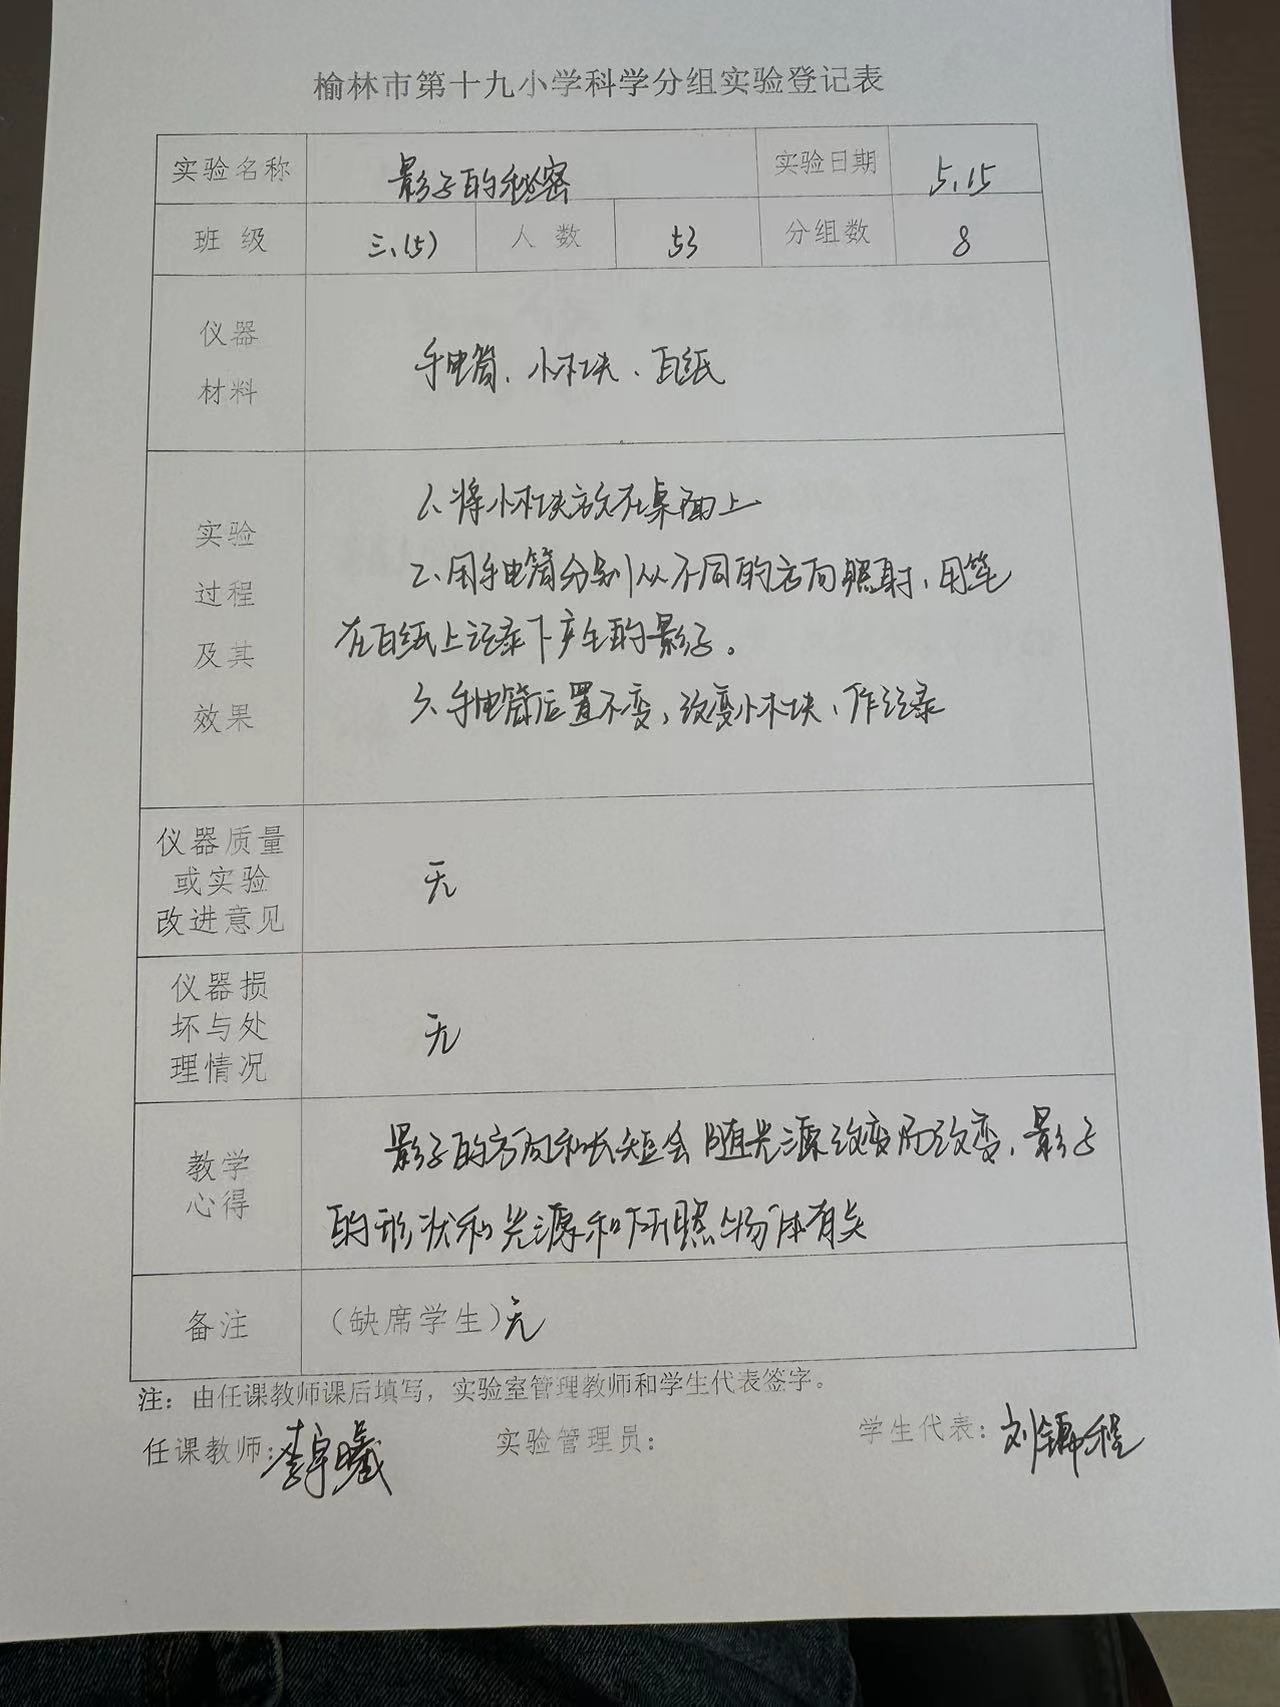 榆林市第十九小学科学分组实验登记表
实验名称 影子的秘密 实验日期 5.15
班级 三.(5) 人数 53 分组数 8
仪器
材料
手电筒、小木块、白纸
实验
过程
及其
效果
1、将小木块放在桌面上
2、用手电筒分别从不同的方向照射，用笔
在白纸上记录下产生的影子。
3、手电筒位置不变，改变小木块，作记录
仪器质量
或实验
改进意见
无
仪器损
坏与处
理情况
无
教学
心得
影子的方向和长短会随光源改变而改变，影子
的形状和光源和所照物体有关
备注 (缺席学生)无
注：由任课教师课后填写，实验室管理教师和学生代表签字。
任课教师：李宇曦 实验管理员： 学生代表：刘程